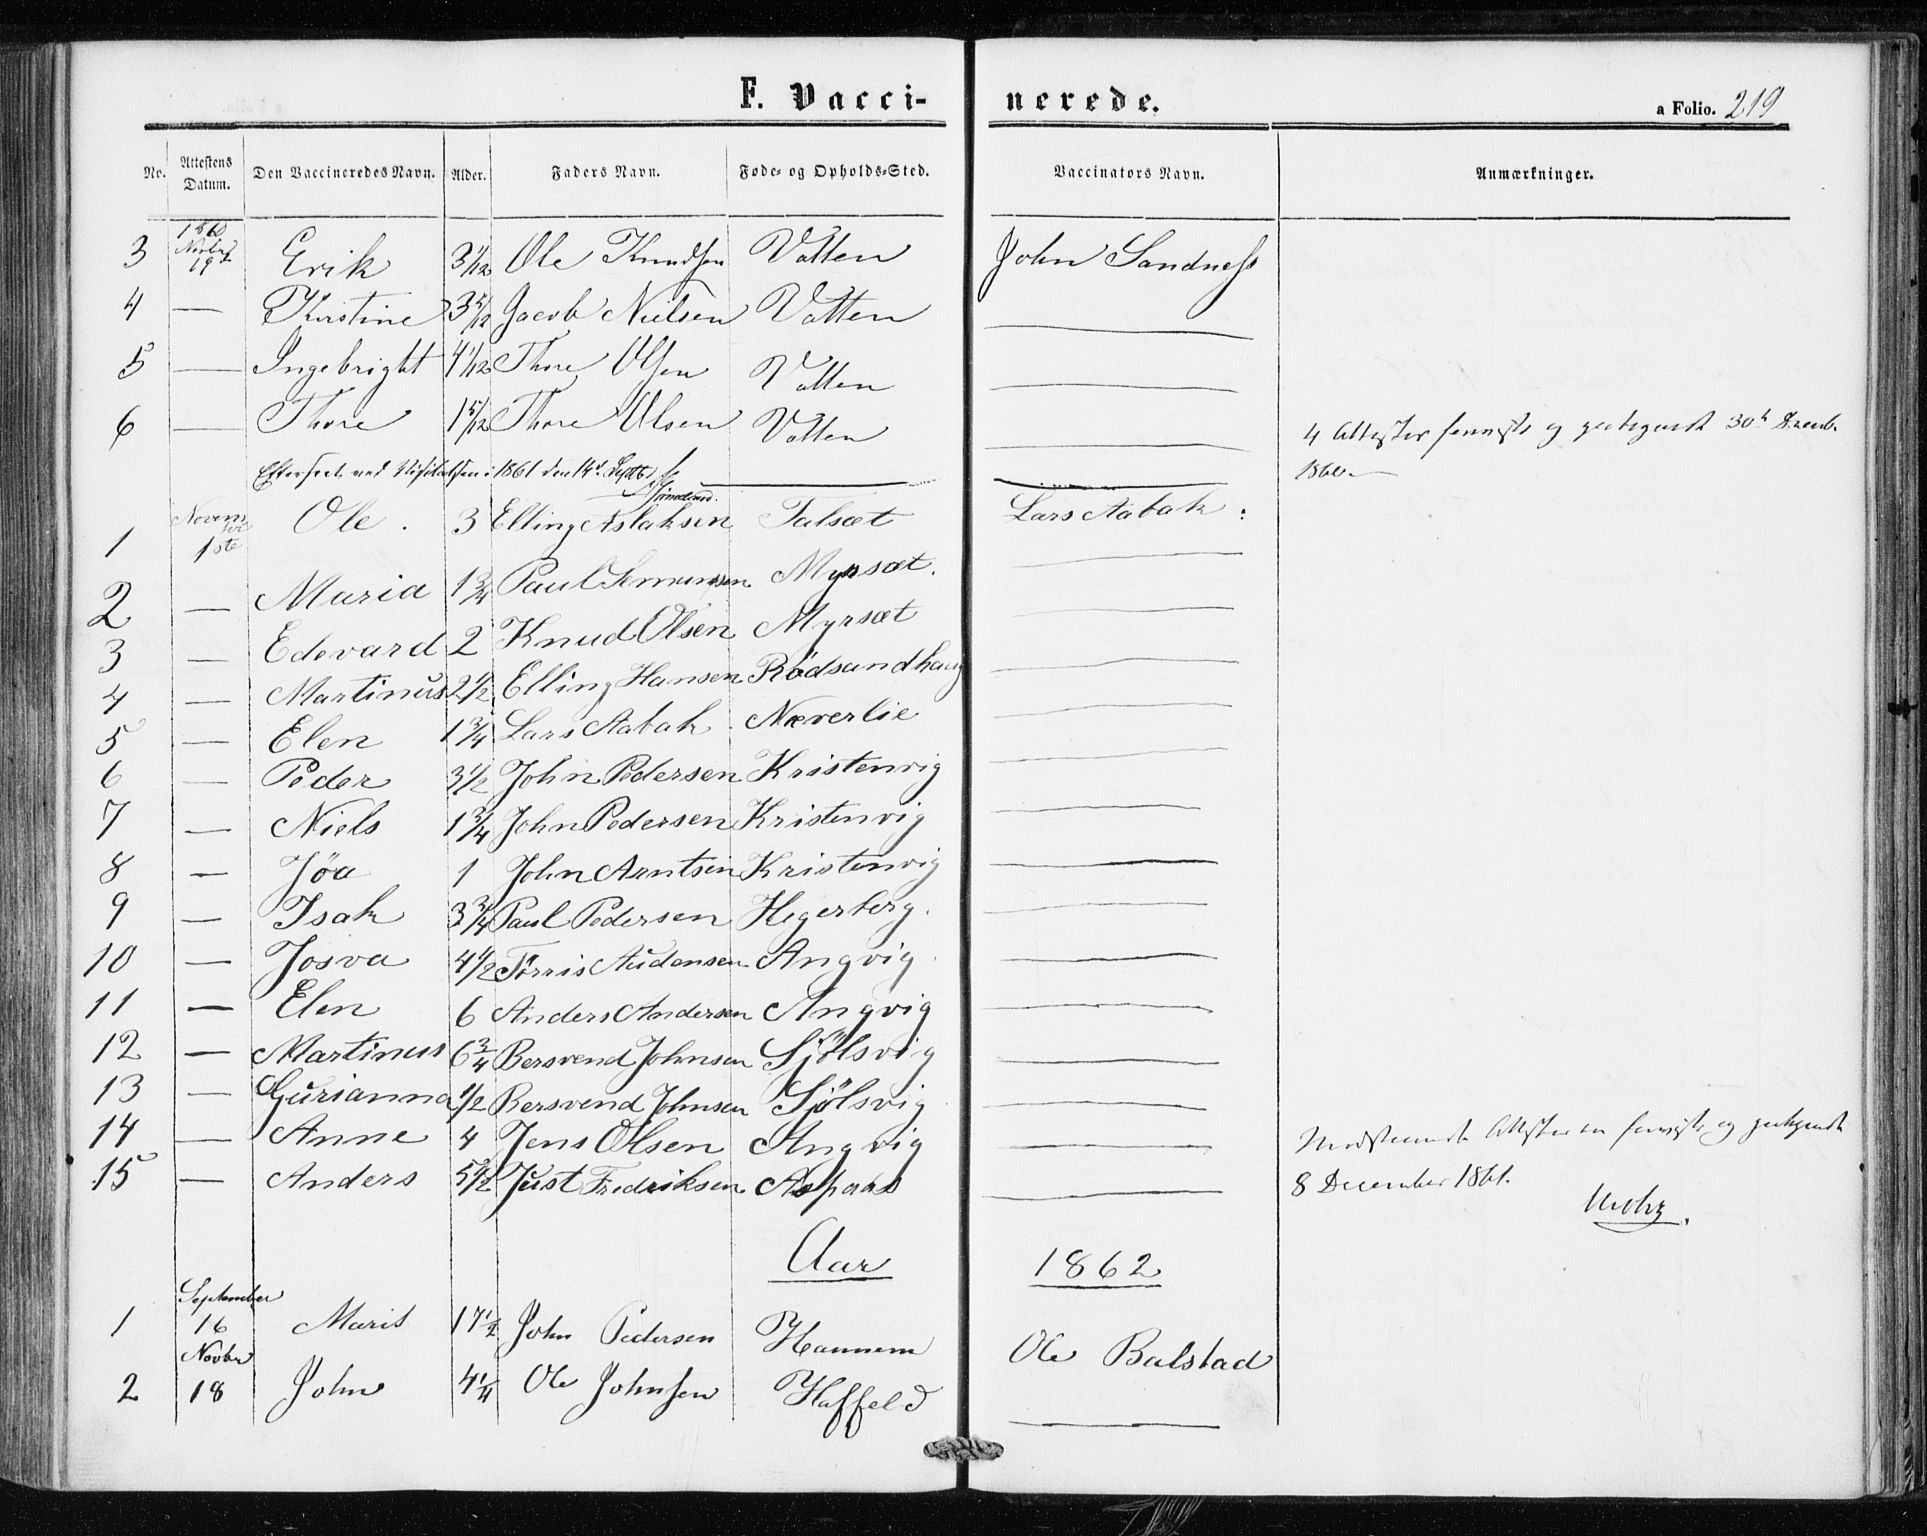 F. Vaccinerede. a Folio. 219
No. Attestens Datum. Den Vaccineredes Navn. Alder. Faders Navn. Føde- og Opholds-Sted. Vaccinators Navn. Anmærkninger.
3 1860 Novbr 19 Erik 3 1/12 Ole Knudsen Vatten John Sandness
4 — Kirstine 3 5/12 Jacob Nielsen Vatten —
5 — Ingebrigt 4 1/12 Thore Olsen Vatten —
6 — Thore 1 5/12 Thore Olsen Vatten — 4 Attester og 30te Decemb.
1860.
Efterseet ved Visitatsen i 1861 den 14de Septbr.
1 November 1ste Ole. 3 Elling Aslaksen Talsæt Lars Aabak :
2 — Maria 1 3/4 Paul Myrsæt. —
3 — Edevard 2 Knud Olsen Myrsæt —
4 — Martinus 2 1/2 Elling Hansen Rødsandhaug —
5 — Elen 1 3/4 Lars Aabak Næverlie —
6 — Peder 3 1/2 John Pedersen Kristenvig —
7 — Niels 1 3/4 John Pedersen Kristenvig —
8 — Jöa 1 John Arntsen Kristenvig —
9 — Isak 3 3/4 Paul Pedersen Hegerberg. —
10 — Josva 4 1/2 Tørris Audensen Angvig. —
11 — Elen 6 Anders Andersen Angvig —
12 — Martinus 6 3/4 Bersvend Johnsen Sjölsvig —
13 — Gurianna 1/2 Bersvend Johnsen Sjölsvig —
14 — Anne 4 Jens Olsen Angvig — Attester og
15 — Anders 5 1/2 Just Fredriksen Aspaas — 8 December 1861.
Aar 1862
1 September 16 Marit 17 1/2 John Pedersen Hannem Ole Balstad
2 Novbr 18 John 4 1/4 Ole Johnsen Haffeld —